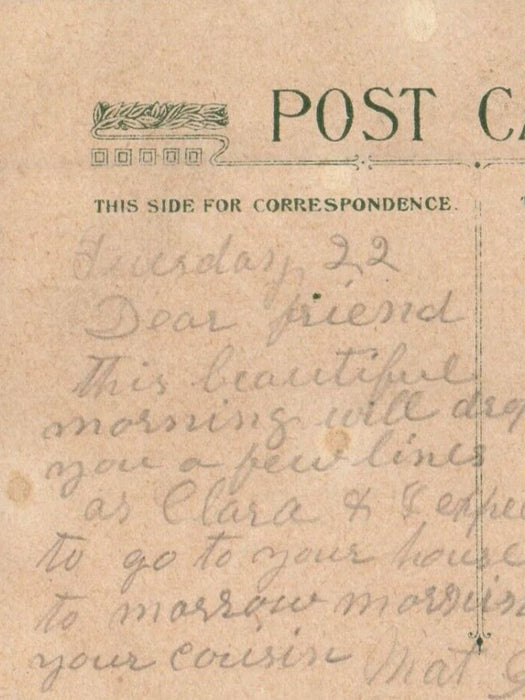 POST CA
THIS SIDE FOR CORRESPONDENCE.
Tuesday 22
Dear friend
this beautiful
morning will drop
you a few lines
as Clara & I expec
to go to your house
to morrow mornin
your cousin Mat